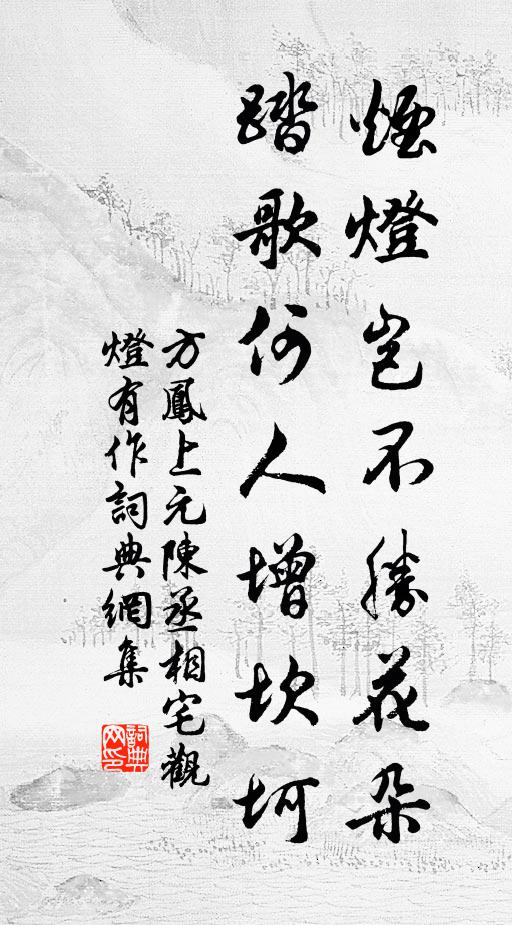 煙燈豈不勝花朵
踏歌何人增坎坷
方鳳上元陳丞相宅觀
燈有作詞典網集
詞典
网印